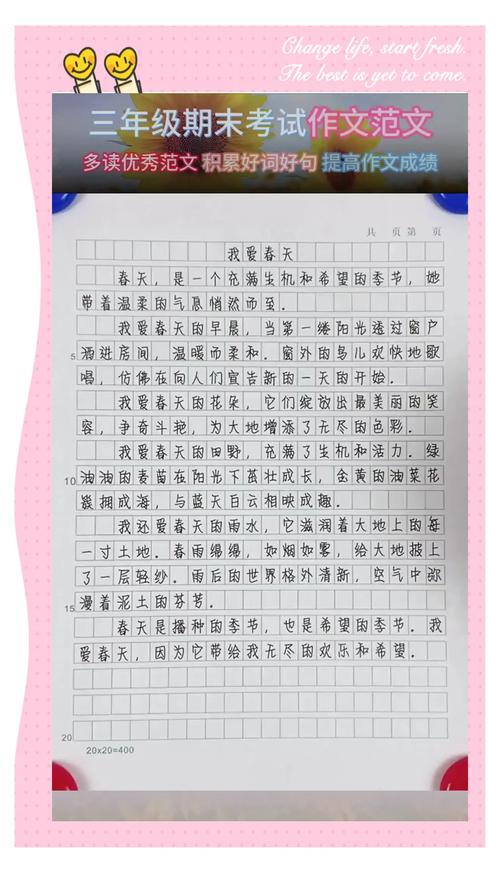 Change life, start fresh.
The best is yet to come.
三年级期末考试作文范文
多读优秀范文 积累好词好句 提高作文成绩
共 页 第 页
我爱春天
春天，是一个充满生机和希望的季节，她
带着温柔的气息悄然而至．
我爱春天的早晨，当第一缕阳光透过窗户
5 洒进房间，温暖而柔和．窗外的鸟儿欢快地歌
唱，仿佛在向人们宣告新的一天的开始．
我爱春天的花朵，它们绽放出最美丽的笑
容，争奇斗艳，为大地增添了无尽的色彩．
我爱春天的田野，充满了生机和活力．绿
10 油油的麦苗在阳光下茁壮成长，金黄的油菜花
簇拥成海，与蓝天白云相映成趣．
我还爱春天的雨水，它滋润着大地上的每
一寸土地．春雨绵绵，如烟如雾，给大地披上
了一层轻纱．雨后的世界格外清新，空气中弥
15 漫着泥土的芬芳．
春天是播种的季节，也是希望的季节．我
爱春天，因为它带给我无尽的欢乐和希望．
20
20×20=400